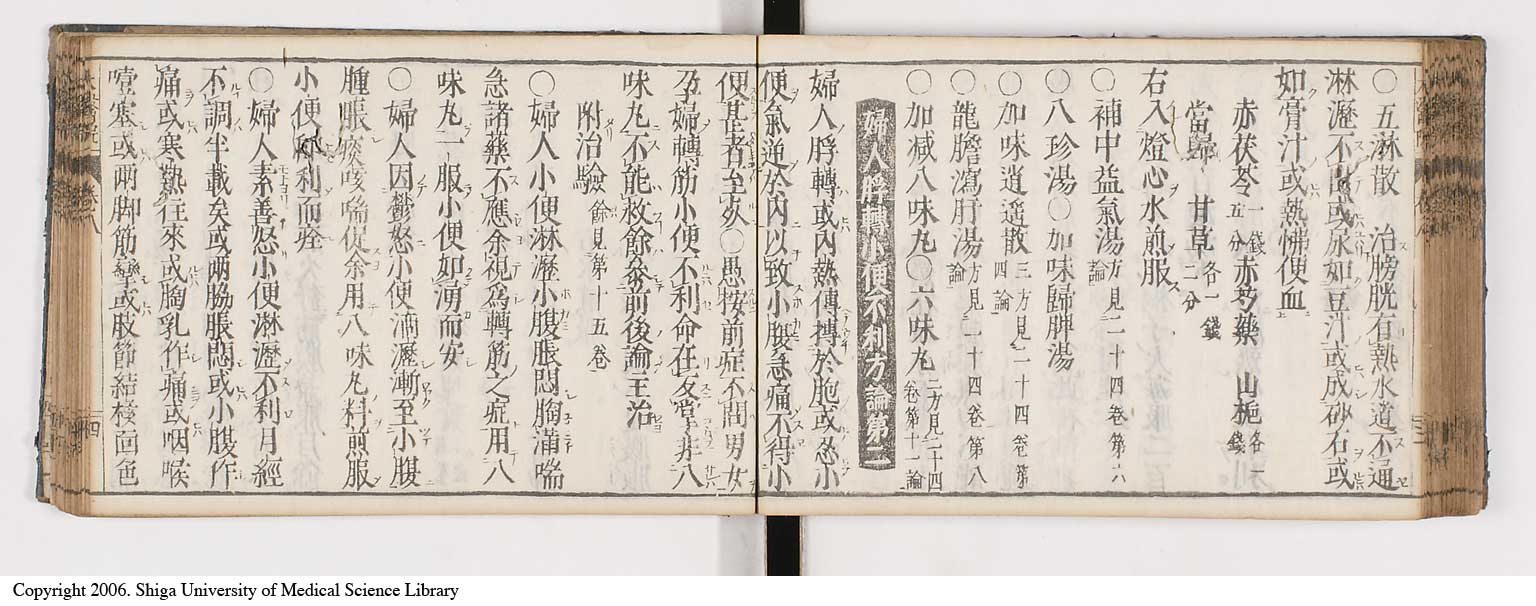 ○五淋散 治膀胱有熱水道不通
淋瀝不出或尿如豆汁或成砂石或
如膏汁或熱怫便血
赤茯苓一錢五分 赤芍藥 山梔各一錢
當歸 甘草各一錢二分
右入燈心水煎服
○補中益氣湯方見二十四卷第六論
○八珍湯○加味歸脾湯
○加味逍遥散三方見二十四卷第四論
○龍膽瀉肝湯方見二十四卷第八論
○加减八味丸○六味丸二方見二十四卷第十一論
婦人脬轉小便不利方論第二
婦人脬轉或内熱傳摶於胞或忍小
便氣逆於内以致小腹急痛不得小
便甚者至死○愚按前症不問男女
孕婦轉筋小便不利命在反掌非八
味丸不能救餘參前後論主治
附治驗餘見第十五卷
○婦人小便淋瀝小腹脹悶胸滿喘
急諸藥不應余視爲轉筋之症用八
味丸一服小便如湧而安
○婦人因鬱怒小便滴瀝漸至小腹
腫脹痰咳喘促余用八味丸料煎服
小便稍利而痊
○婦人素善怒小便淋瀝不利月經
不調半載矣或兩脇脹悶或小腹作
痛或寒熱往來或胸乳作痛或咽喉
噎塞或兩脚筋攣或肢節結核面色
Copyright 2006. Shiga University of Medical Science Library